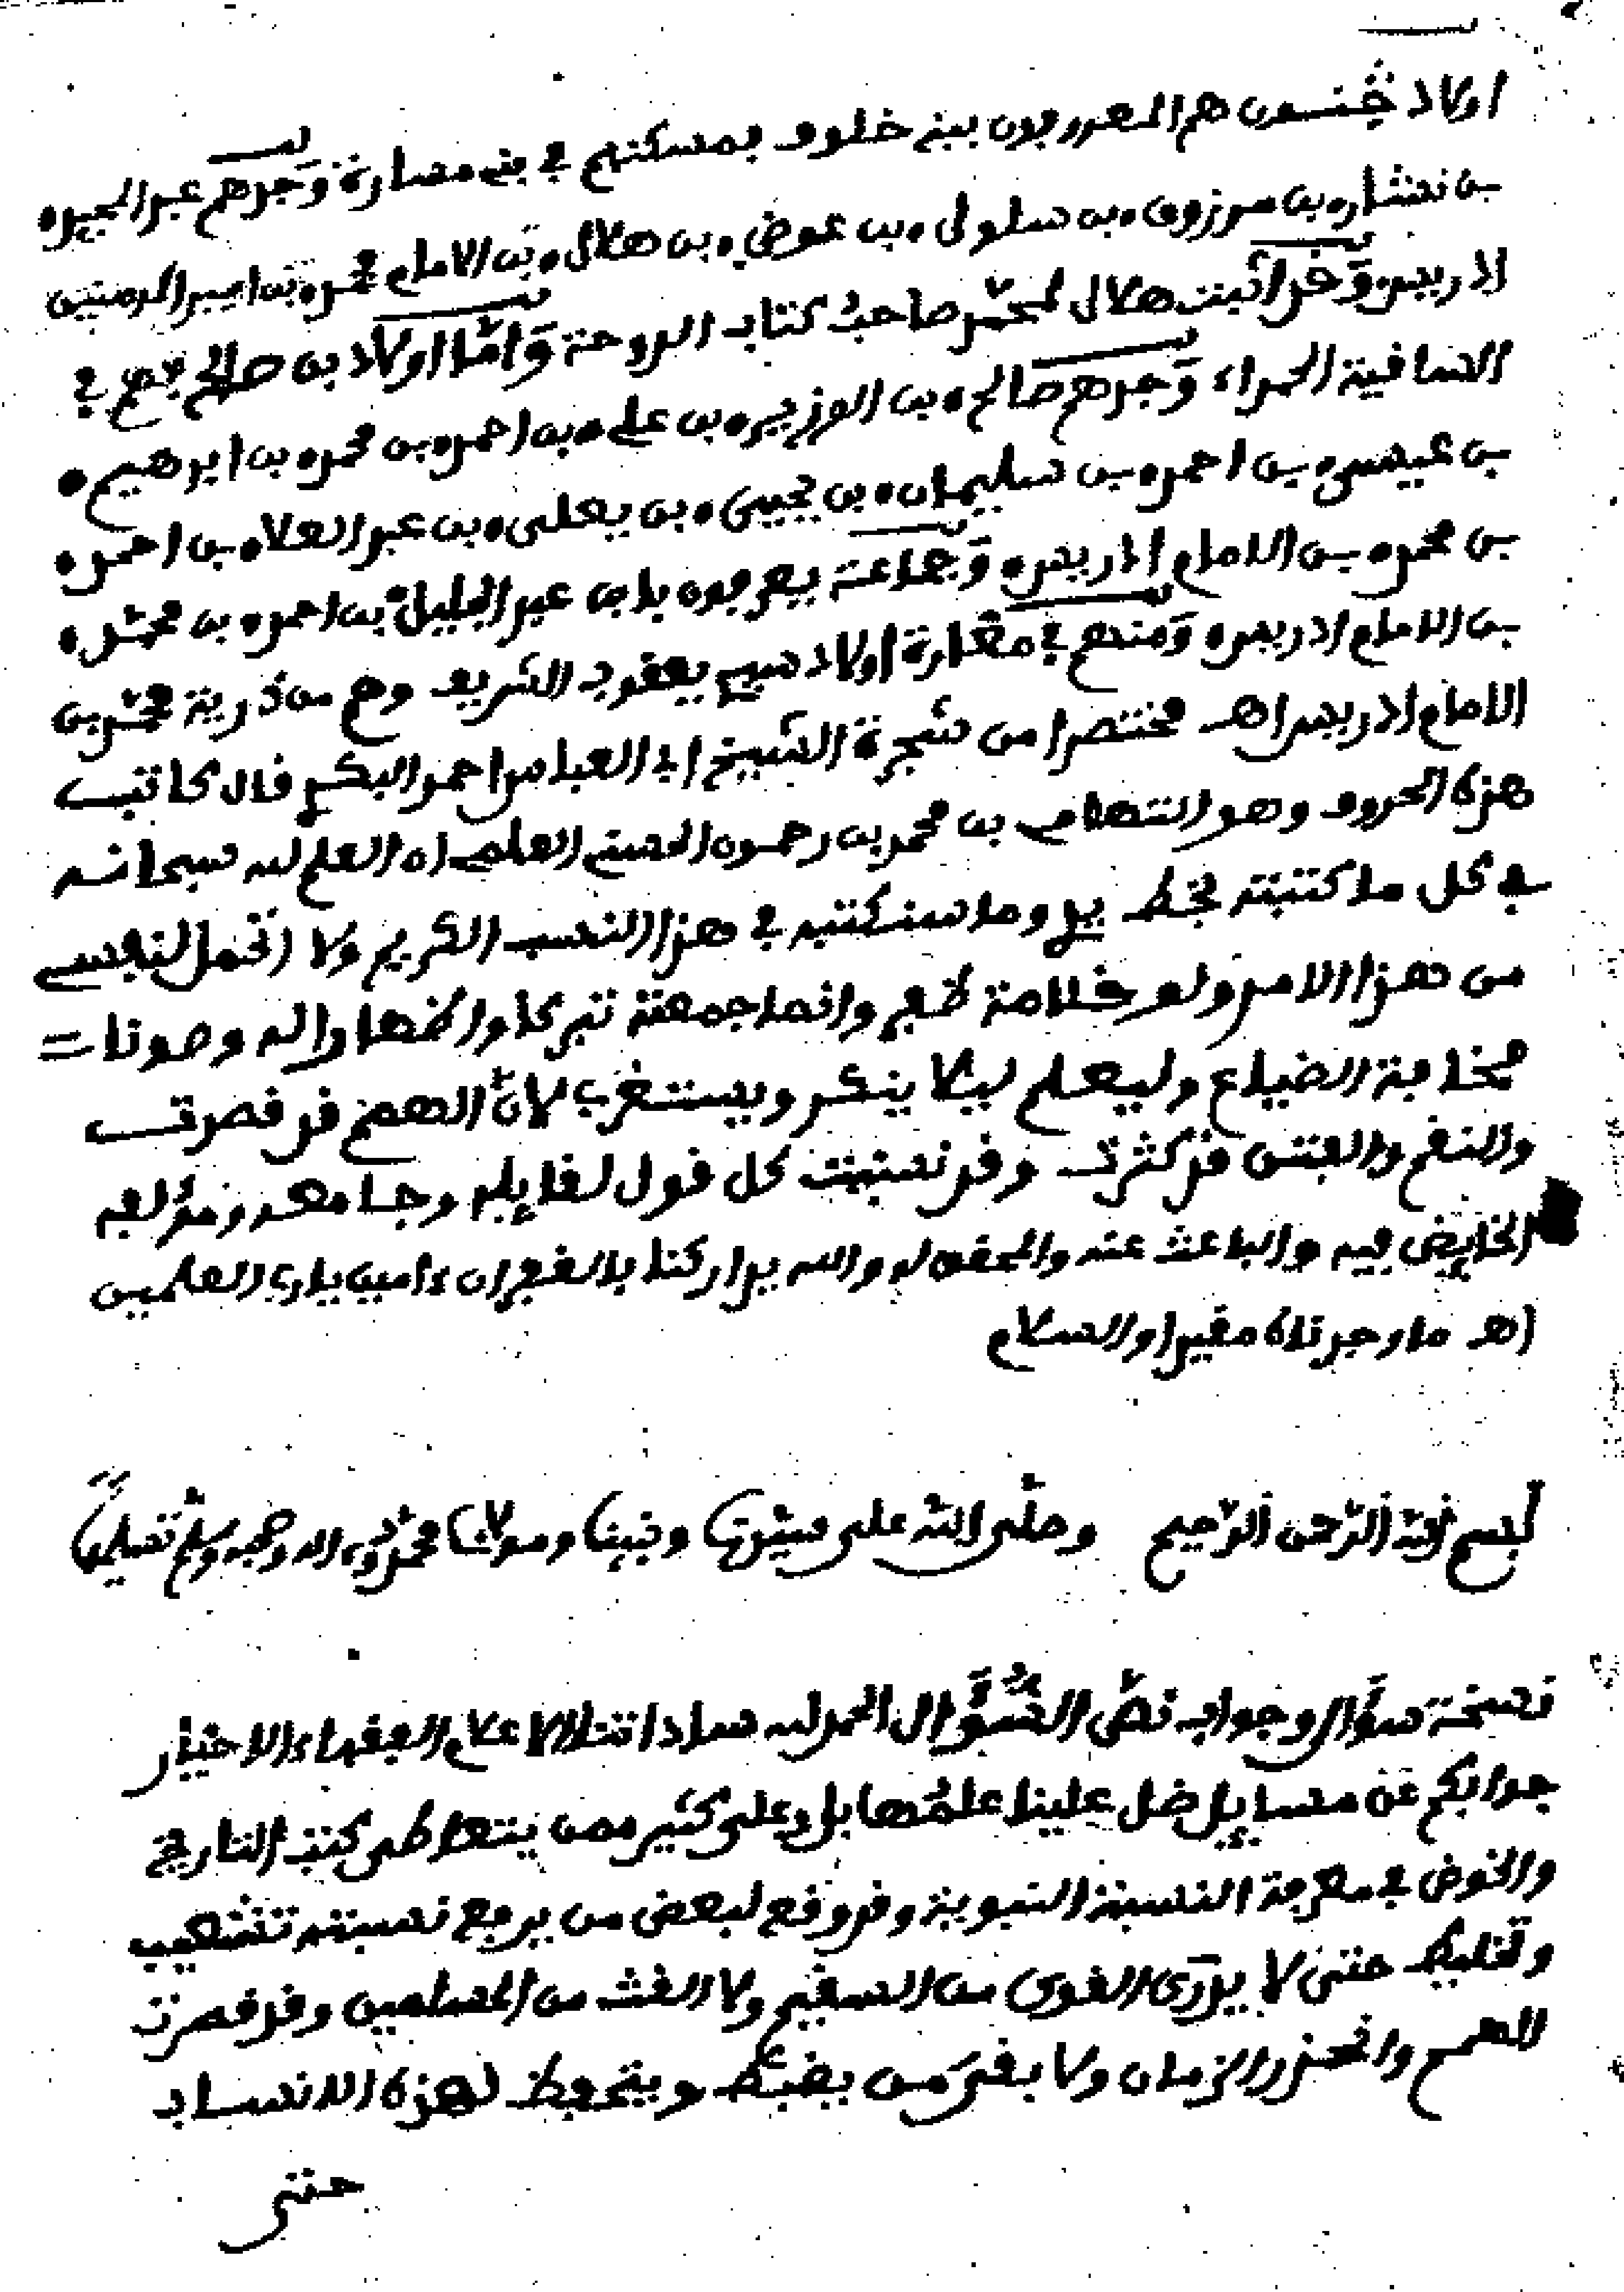 اولاد خنسون هم المعروفون ببني خلوف بمسكنهم في بني مصارة وجدهم عبد المجيد
بن نشار بن مرزوق بن سلولى بن عوض بن هلال بن الامام محمد بن امير المومنين
ادريس وقد اثبت هلال لمحمد صاحب كتاب الدوحة واما اولاد بن صالح فهم في
الساقية الحمراء وجدهم صالح بن الوزير بن علي بن احمد بن محمد بن ابرهيم
بن عيسى بن احمد بن سليمان بن يحيى بن يعلى بن عبد العلا بن احمد
بن محمد بن الامام ادريس وجماعة يعرفون بابن عبد الجليل بن احمد بن محمد
بن الامام ادريس ومنهم في مغارة اولاد سيدي يعقوب الشريف وهم من ذرية محمد بن
الامام ادريس اهـ مختصرا من شجرة الشيخ ابي العباس احمد البكري قال كاتب
هذه الحروف وهو التهامي بن محمد بن رحمون الحسني العلمي ان العلم لله سبحانه
في كل ما كتبته بخط يدي وما سنكتبه في هذا النسب الكريم ولا اتحمل لنفسي
من هذا الامر ولو قلامة ظفر وانما جمعته تبركا والحفا واله وصونا
مخافة الضياع وليعلم ليلا ينكر ويستغرب لان الهمم قد قصرت
والنقم والفتن قد كثرت وقد نسبت كل قول لقايله وجامعه ومؤلفه
الخايض فيه والباعث عنه والمحقق له والله يداركنا بالغفران ءامين يارب العلمين
اهـ ما وجدناه مقيدا والسلام
بسم الله الرحمن الرحيم وصلى الله على سيدنا ونبينا ومولانا محمد وءاله وصحبه وسلم تسليما
نسخة سؤال وجواب نص السؤال الحمد لله ساداتنا الاعلام الفقهاء الاخيار
جوابكم عن مسايل ضل علينا علمها بل وعلى كثير ممن يتعاطى كتب التاريخ
والخوض في معرفة النسبة النبوية وقد وقع لبعض من يرفع نسبته تشعيب
وتخليط حتى لا يدرى القوي من السقيم ولا الغث من السمين وقد قصرت
الهمم وانحزر الزمان ولا بقى من يضبط ويتحفظ لهذه الانساب
حتى